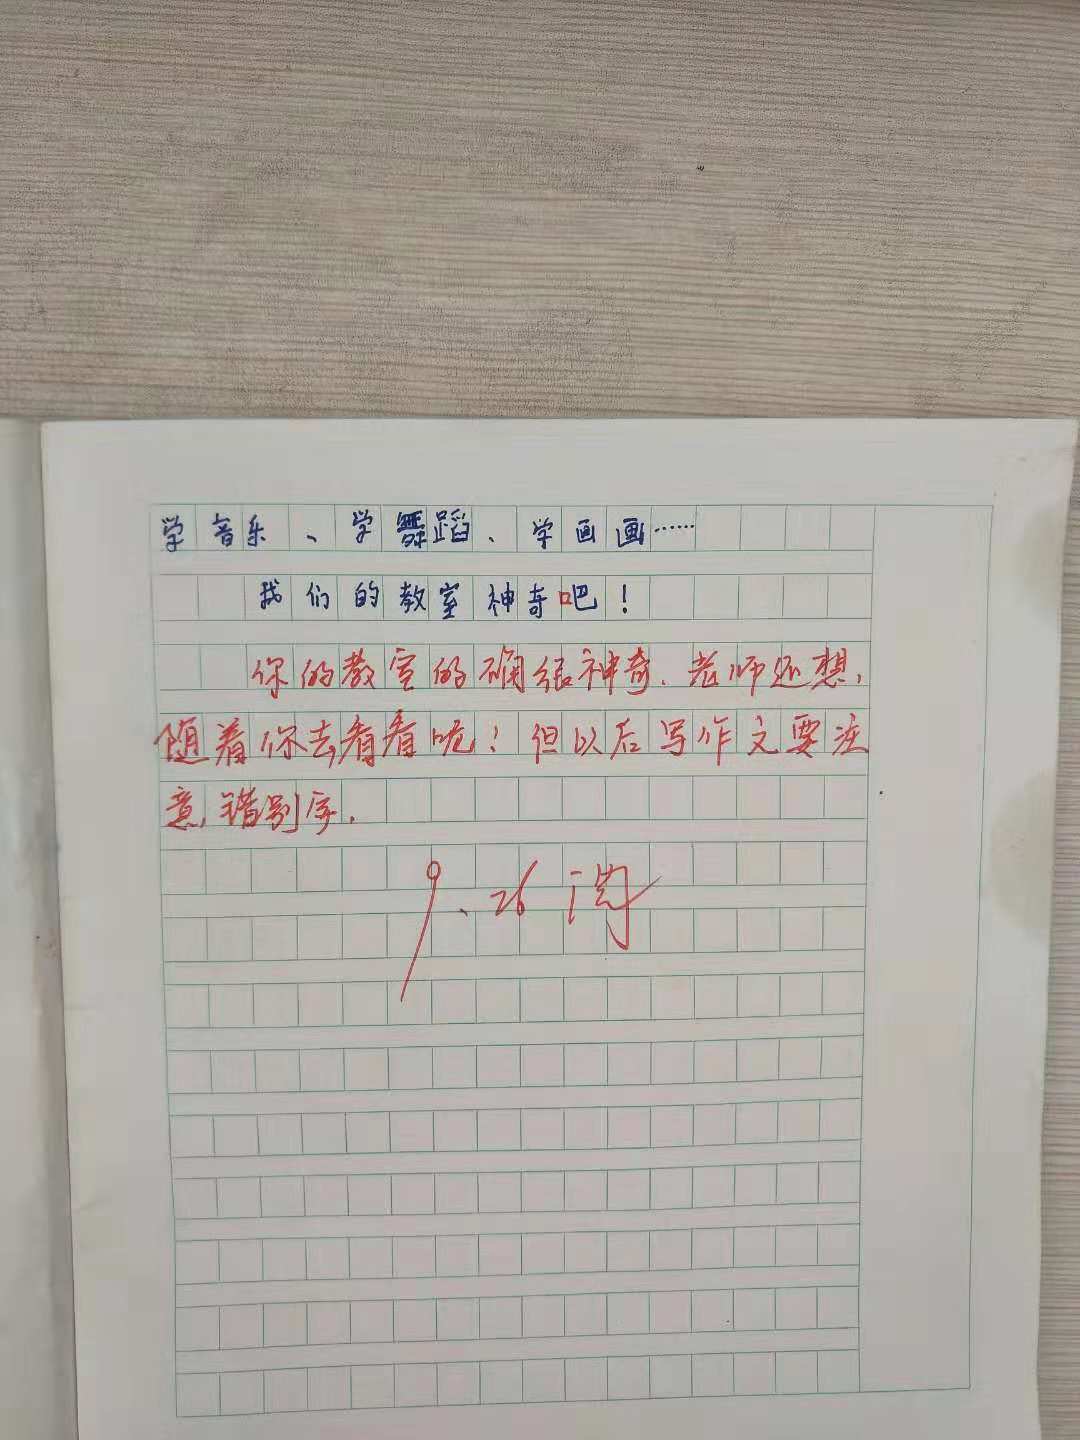 学音乐、学舞蹈、学画画……
我们的教室神奇吧！
你的教室的确很神奇。老师还想，
随着你去看看呢！但以后写作文要注
意，错别字。
9.26